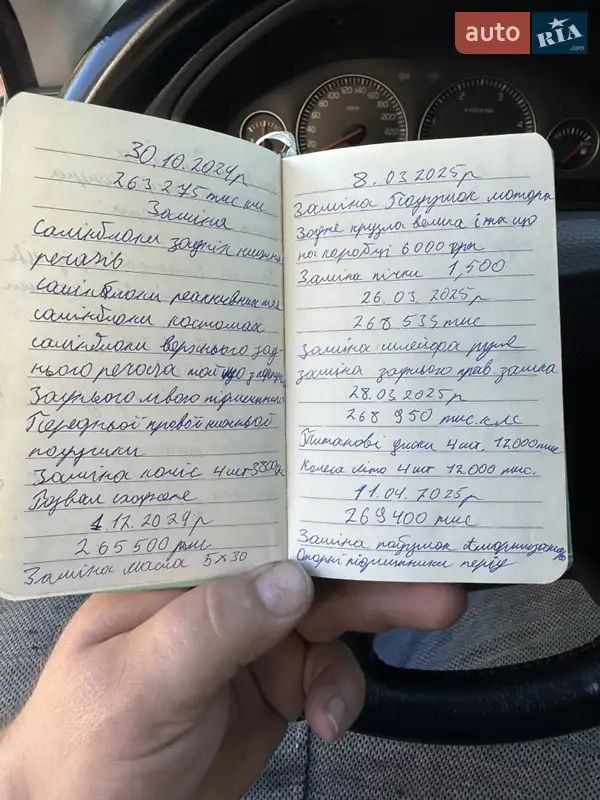 auto RIA .com
30.10.2024р
263.275 тис км
Заміна
самінблоки задніх нижніх
речагів
самінблоки реактивних тяг
самінблоки костомах
самінблоки верхнього зад-
нього речага той що з
Заднього лівого підшипника
Передньої правої нижньої
подушки
Заміна коліс 4 шт 3800
1.12.2024р
265500 тис
Заміна масла 5х30
8.03 2025р
Заміна Подушок мотора
Задне кругла велика і та що
на коробці 6000 грн
Заміна пічки 1,500
26.03. 2025р
268 535 тис
Заміна шлейфа руля
заміна заднього прав. замка
28.03 2025р
268 950 тис.км
Титанові диски 4 шт. 12000 тис
Колеса літо 4 шт 12 000 тис.
11.04. 2025р
269 400 тис
Заміна подушок
Опорні підшипники перед